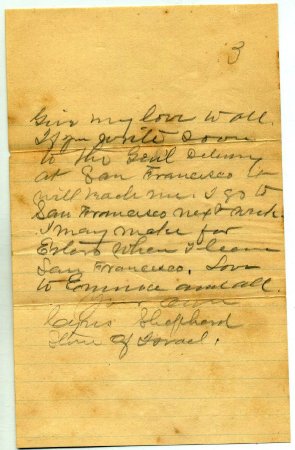 3
Give my love to all.
If you write soon
to the Genl Delivery
at San Francisco it
will reach me. I go to
San Francisco next week.
I may make for
when I leave
San Francisco. Love
to and all.

Shepherd
of Israel.